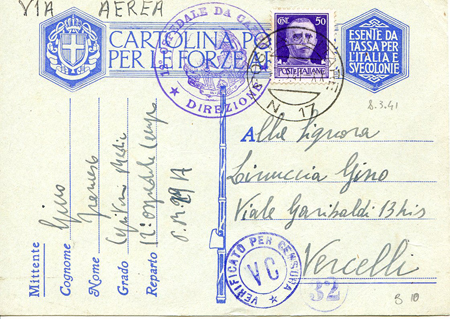 VIA AEREA
CARTOLINA PO
PER LE FORZE
12° OSPEDALE DA CA
DIREZIONE
CENT. 50
POSTE ITALIANE
N. 17
ESENTE DA
TASSA PER
L'ITALIA
SUE COLONIE
8.3.41
Alla Signora
Linuccia Gino
Viale Garibaldi 13 bis
Vercelli
Mittente
Cognome Gino
Nome
Grado
Reparto 12° ospedale Campo
P.M.
VERIFICATO PER CENSURA
VC
32